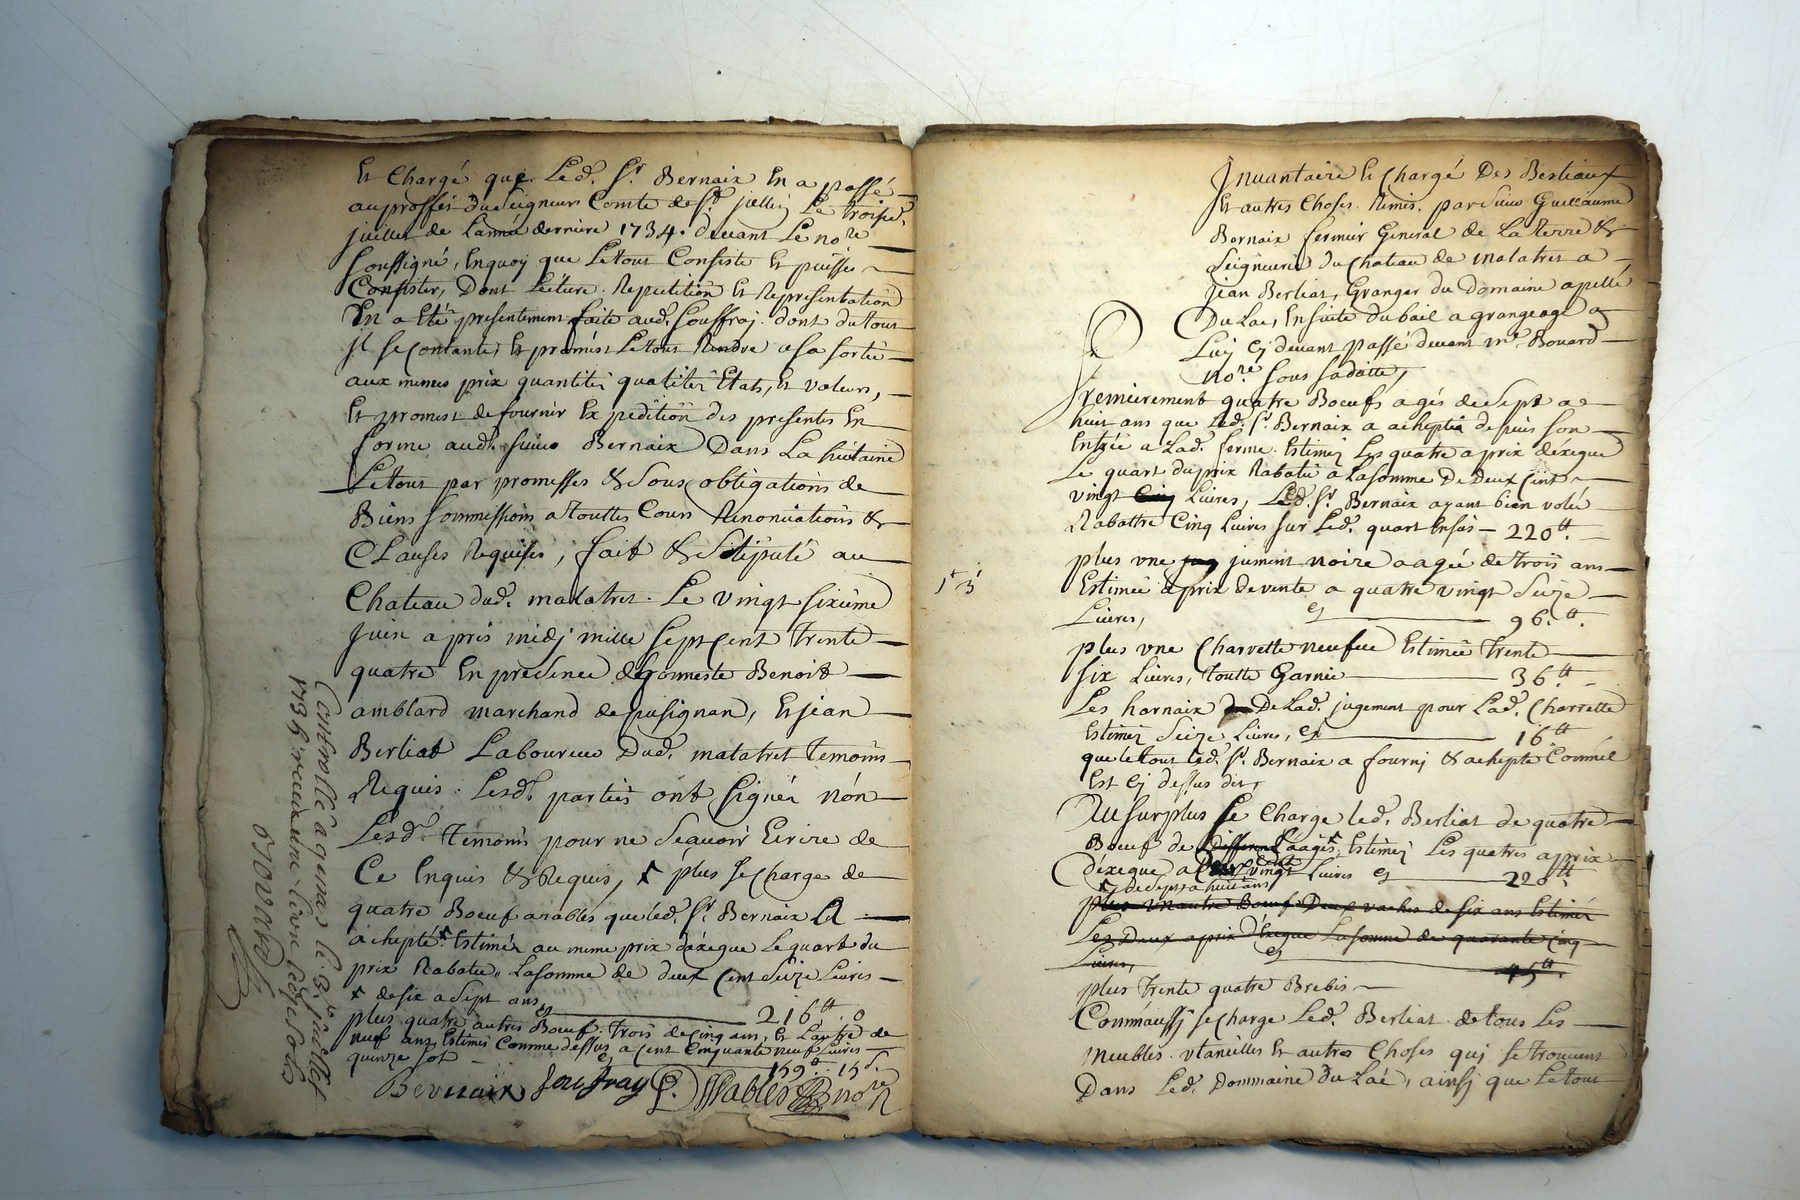 Et Chargé que Led. Sr. Bernaix En a passé
au proffit du seigneur Comte de St. jullin Le troise.
juillet de Lannée derniere 1734. devant Le nore
soussigné, Enquoy que Letout Consiste Et puisse
Consister, Dont Lecture. Repetition Et Representation
En a Eté presentement faite aud. Souffraj. dont du tout
Il se contante, Et promest Letout Rendre a sa sortie
aux mêmes prix quantités qualités Etats, Et valeurs,
Et promest de fournir Expedition des presentes En
forme aud. sieur Bernaix Dans La huitaine
Letout par promesses & Sous obligations de
Biens Sommissions a touttes Cours Renonciations &
Clauses Requises, fait & Stipulé au
Chateau dud. malatret. Le vingt sixieme
Juin apris midj mille sept cent Trente
quatre En presence d'honneste Benoit
amblard marchand de pusignan, Et jean
Berliat Laboureur Dud. malatret Temoins
Requis. Lesd. parties ont signés nón
Lesd. Temoins pour ne sçavoir Ecrire de
Ce Enquis & Requis, plus se Charge de
quatre Boeuf arables que led. Sr. Bernaix A
achepté. Estimés au meme prix d'éxegue Le quart du
prix Rabatu. Lasomme de deux Cent Seize Livres
de six a sept ans
216tt. 0
plus quatre autres Boeuf. trois de cinq ans, Et Lautre de
neuf ans Estimés Comme dessus a cent Cinquante neuf Livres
quinze sol
159tt. 15s.
Bernaix Soufray nore
Controllé a le 3e juillet
173 recu une Livre sols
Bovard
Inuantaire Et Chargé Des Bestiaux
Et autres Choses. Remis. par Sieur Guillaume
Bernaix fermier General de La terre &
Seigneurie du Chateau de malatret a
Jean Berliat, Granger du Domaine apellé
Du Lac, En suite du bail a grangeage a
Luy cj devant passé devant mr. Bovard
nore sous sa datte,
Premierement quatre Boeufs agés de sept a
huit ans que Led. Sr. Bernaix a acheptés depuis son
Entrée a Lad. ferme. Estimés Les quatre a prix d'éxegue
Le quart du prix Rabatu a La somme De Deux Cent
vingt Cinq Livres, Led. Sr. Bernaix ayant bien volu
Rabattre Cinq Livres sur Led. quart Ensui 220tt.
plus vne jument noire aagée de trois ans
Estimée aprix de vente a quatre vingt Seize
Livres, cj 96.tt.
plus vne Charrette neufue Estimée Trente
six Livres, toutte Garnie 36.tt
Les harnaix De Lad. jugement pour Lad. Charrette
Estimés Seize Livres, cj 16tt
que letout Led. Sr. Bernaix a fournj & achepté Commé
Est cj dessus dit
Au surplus se Charge led. Berliat de quatre
Boeuf de different aages, Estimés Les quatres a prix
d'éxegue a Deux Cent vingt Livres cj 220tt
de sept a huit ans
plus vn autre Boeuf Deux vaches de six ans Estimés
Les Deux a prix d'Exegue La somme de quarante cinq
Livres, cj 45tt.
plus Trente quatre Brebis
Comm'aussj se charge Led. Berliat. de tous Les
meubles. vtancilles Et autres Choses quj se trouvent
Dans Led. Dommaine du Lac, ainsj que Letout